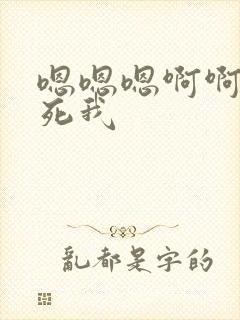 嗯嗯嗯啊啊
死我
亂都是字的